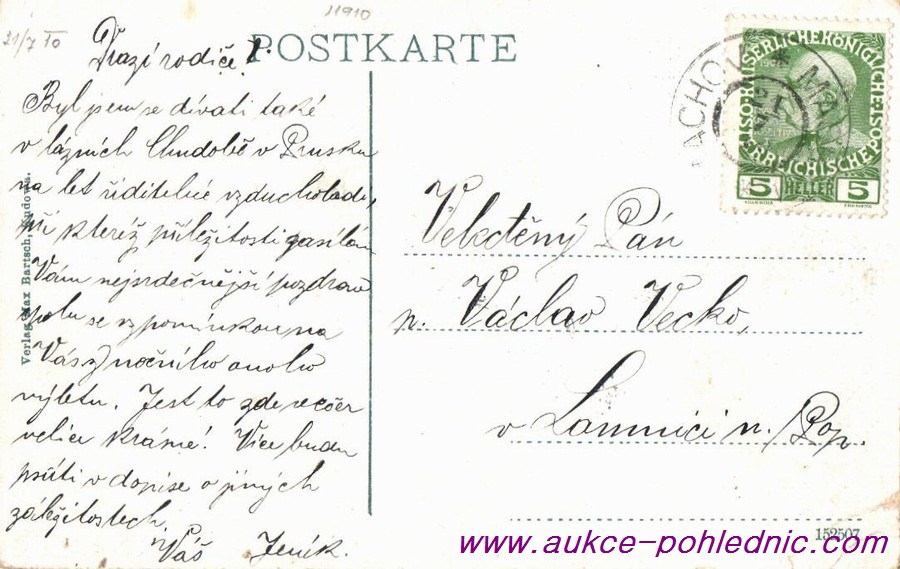 11910
21/7 10
Drazí rodiče!
POSTKARTE
Byl jsem se dívati také
v lázních Chudobě v Prusku
na let řiditelné vzducholodi,
při kteréž příležitosti zasílám
Vám nejsrdečnější pozdrav
spolu se vzpomínkou na
Vás z nočního onoho
výletu. Jest to zde večer
velice krásné! Více budu
psáti v dopise o jiných
záležitostech.
Váš Jeník.
Verlag Max Bartsch, Kudowa.
ACHOV * MA
21
KAISERLICHE KÖNIGLICHE
ÖSTERREICHISCHE POST
5 HELLER 5
Velectěný Pán
p. Václav Vecko,
v Lomnici n./Pop.
152507
www.aukce-pohlednic.com